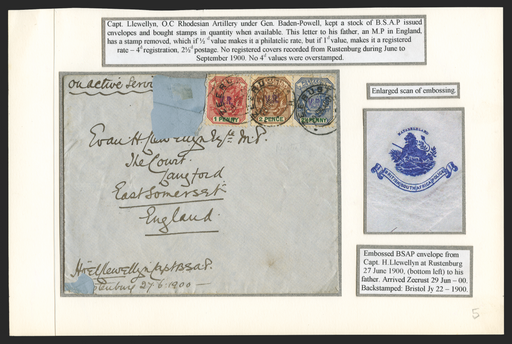 Capt. Llewellyn, O.C Rhodesian Artillery under Gen. Baden-Powell, kept a stock of B.S.A.P issued
envelopes and bought stamps in quantity when available. This letter to his father, an M.P in England,
has a stamp removed, which if ½ d value makes it a philatelic rate, but if 1d value, makes it a registered
rate – 4d registration, 2½d postage. No registered covers recorded from Rustenburg during June to
September 1900. No 4d values were overstamped.
on active Serv
1 PENNY
2 PENCE
Evan H. Llewellyn Esqre M.P.
The Court
Langford
East Somerset
England
H. Llewellyn Capt B.S.A.P.
27-6-1900-
Enlarged scan of embossing.
Embossed BSAP envelope from
Capt. H.Llewellyn at Rustenburg
27 June 1900, (bottom left) to his
father. Arrived Zeerust 29 Jun – 00.
Backstamped: Bristol Jy 22 – 1900.
5